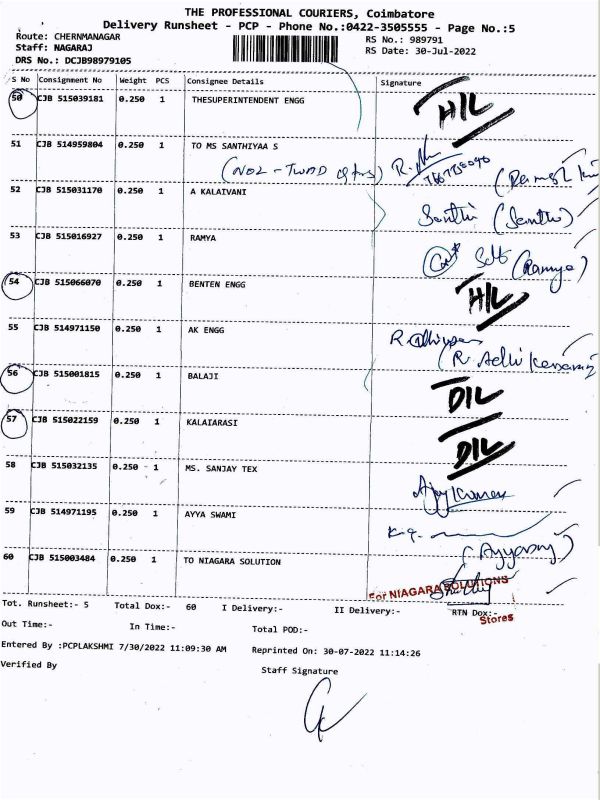 THE PROFESSIONAL COURIERS, Coimbatore
Delivery Runsheet - PCP - Phone No.:0422-3505555 - Page No.:5
Route: CHERNMANAGAR
RS No.: 989791
Staff: NAGARAJ
RS Date: 30-Jul-2022
DRS No.: DCJB98979105
S No Consignment No Weight PCS Consignee Details Signature
50 CJB 515039181 0.250 1 THESUPERINTENDENT ENGG H/L
51 CJB 514959804 0.250 1 TO MS SANTHIYAA S
52 CJB 515031170 0.250 1 A KALAIVANI Santhi (Santhi)
53 CJB 515016927 0.250 1 RAMYA Self (Ramya)
54 CJB 515066070 0.250 1 BENTEN ENGG H/L
55 CJB 514971150 0.250 1 AK ENGG
56 CJB 515001815 0.250 1 BALAJI D/L
57 CJB 515022159 0.250 1 KALAIARASI D/L
58 CJB 515032135 0.250 1 MS. SANJAY TEX Ajay Kumar
59 CJB 514971195 0.250 1 AYYA SWAMI
60 CJB 515003484 0.250 1 TO NIAGARA SOLUTION
For NIAGARA SOLUTIONS
Stores
Tot. Runsheet:- 5 Total Dox:- 60 I Delivery:- II Delivery:- RTN Dox:-
Out Time:- In Time:- Total POD:-
Entered By :PCPLAKSHMI 7/30/2022 11:09:30 AM Reprinted On: 30-07-2022 11:14:26
Verified By Staff Signature